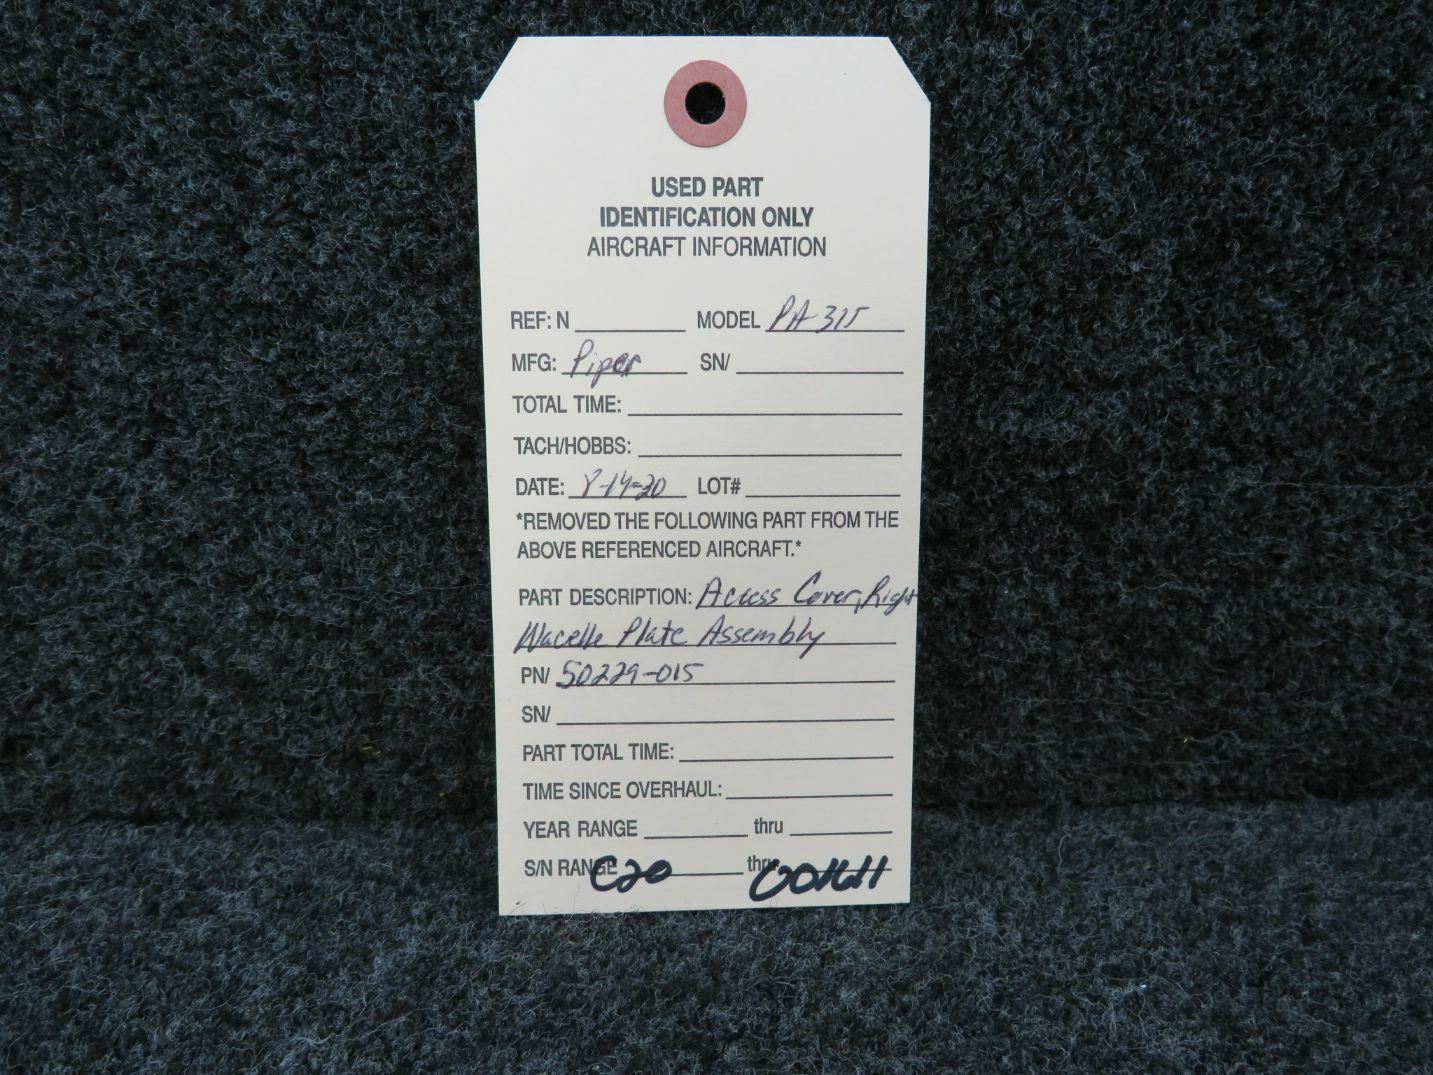 USED PART
IDENTIFICATION ONLY
AIRCRAFT INFORMATION
REF: N MODEL PA-31T
MFG: Piper SN/
TOTAL TIME:
TACH/HOBBS:
DATE: 8-14-20 LOT#
*REMOVED THE FOLLOWING PART FROM THE
ABOVE REFERENCED AIRCRAFT.*
PART DESCRIPTION: Access Cover, Right
Nacelle Plate Assembly
PN/ 50229-015
SN/
PART TOTAL TIME:
TIME SINCE OVERHAUL:
YEAR RANGE thru
S/N RANGE C20 thru